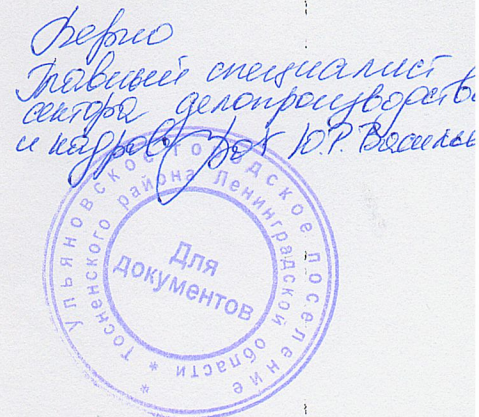 Верно
Главный специалист
сектора делопроизводства
и кадров Ю.Р. Василь
Ульяновское городское поселение *
Тосненского района Ленинградской области *
Для
документов